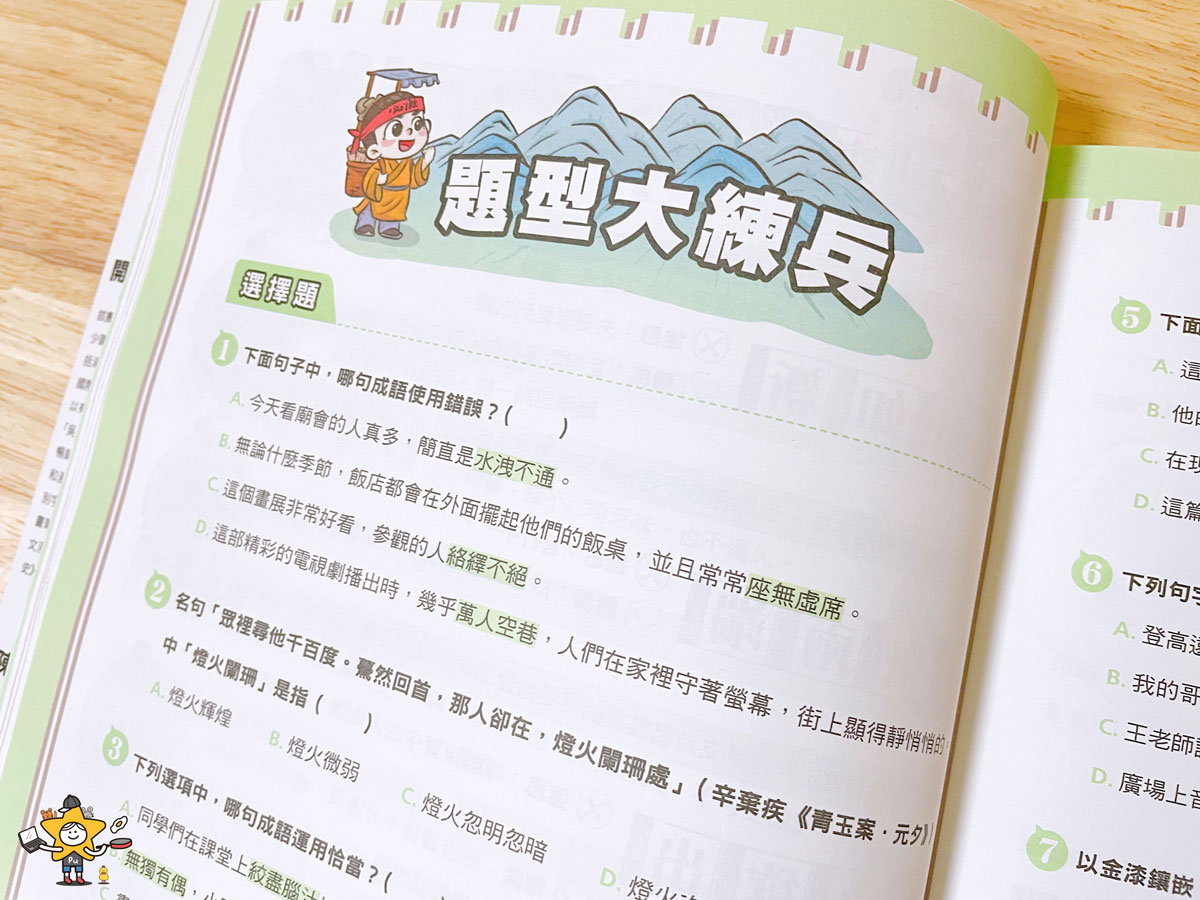 題型大練兵
選擇題
1 下面句子中，哪句成語使用錯誤？（　　）
A. 今天看廟會的人真多，簡直是水洩不通。
B. 無論什麼季節，飯店都會在外面擺起他們的飯桌，並且常常座無虛席。
C. 這個畫展非常好看，參觀的人絡繹不絕。
D. 這部精彩的電視劇播出時，幾乎萬人空巷，人們在家裡守著螢幕，街上顯得靜悄悄的。
2 名句「眾裡尋他千百度。驀然回首，那人卻在，燈火闌珊處」（辛棄疾《青玉案·元夕》）
中「燈火闌珊」是指（　　）
A. 燈火輝煌
B. 燈火微弱
C. 燈火忽明忽暗
D. 燈火
3 下列選項中，哪句成語運用恰當？（
A. 同學們在課堂上絞盡腦汁
B. 無獨有偶，小
C.
5 下面
A. 這
B. 他
C. 在
D. 這篇
6 下列句
A. 登高
B. 我的哥
C. 王老師
D. 廣場上
7 以金漆鑲嵌
開
Pu